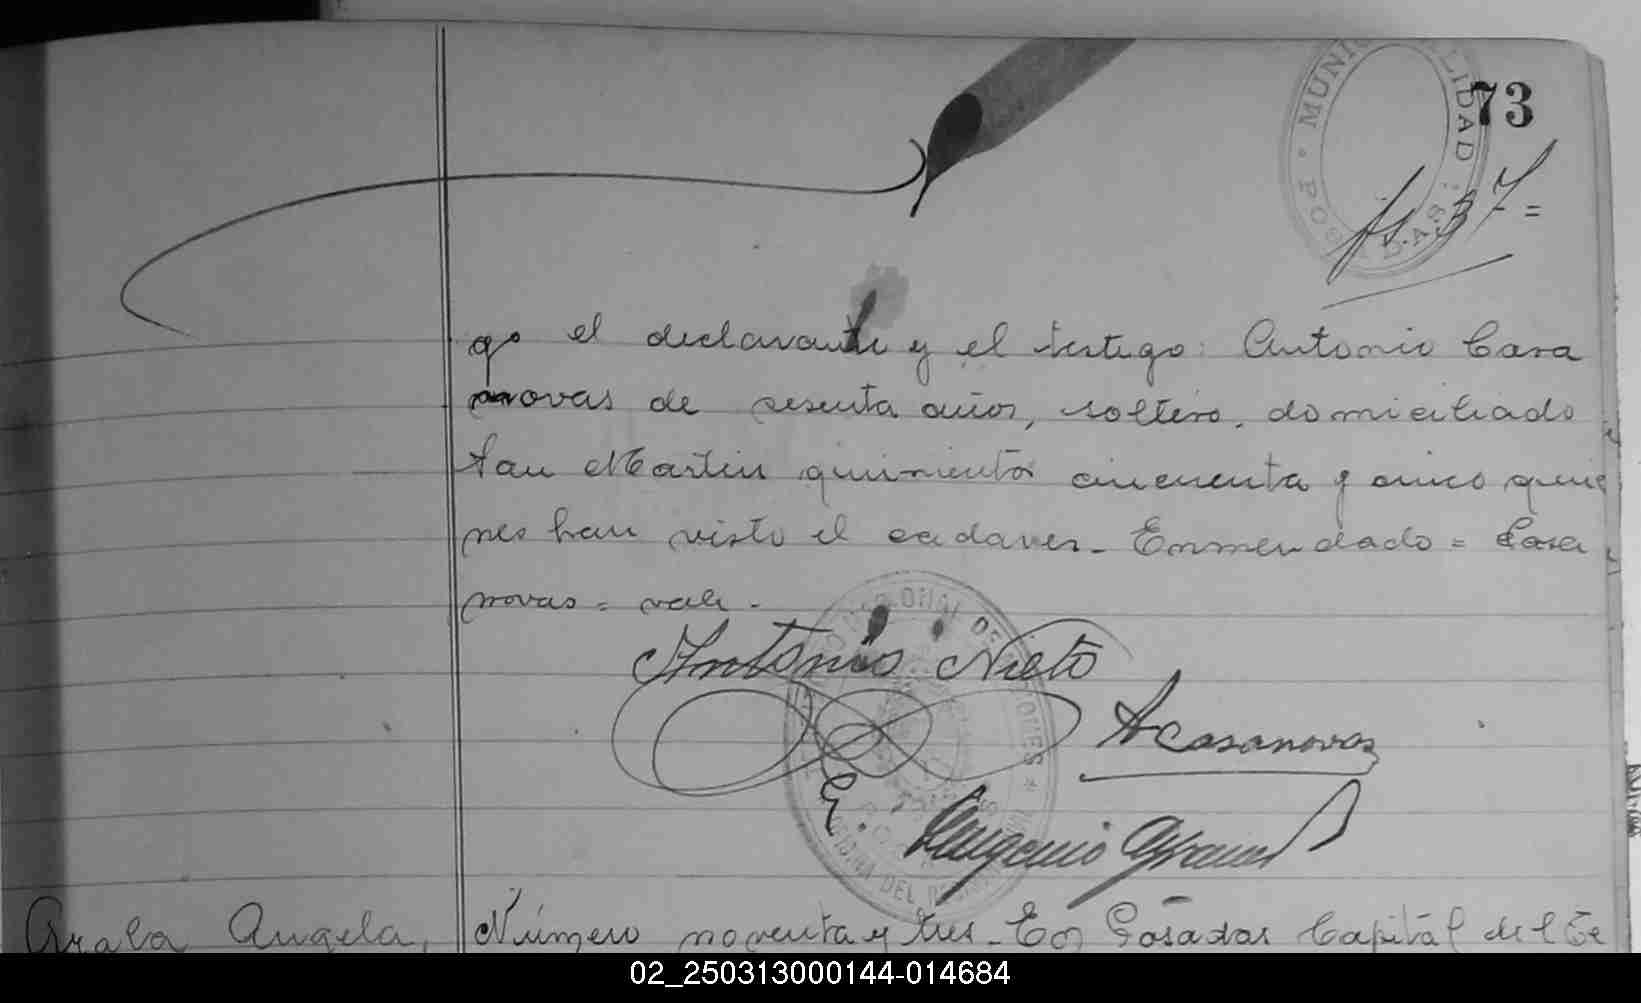 MUNICIPALIDAD
POSADAS
73
fs. 37=
go el declarante y el testigo: Antonio Casa
novas de sesenta años, soltero, domiciliado
San Martin quinientos cincuenta y cinco quie
nes han visto el cadaver. Enmendado = Casa
novas = vale.
Antonio Nieto
A Casanovas
Eugenio
Angela, Número noventa y tres. En Posadas Capital del Te
02_250313000144-014684